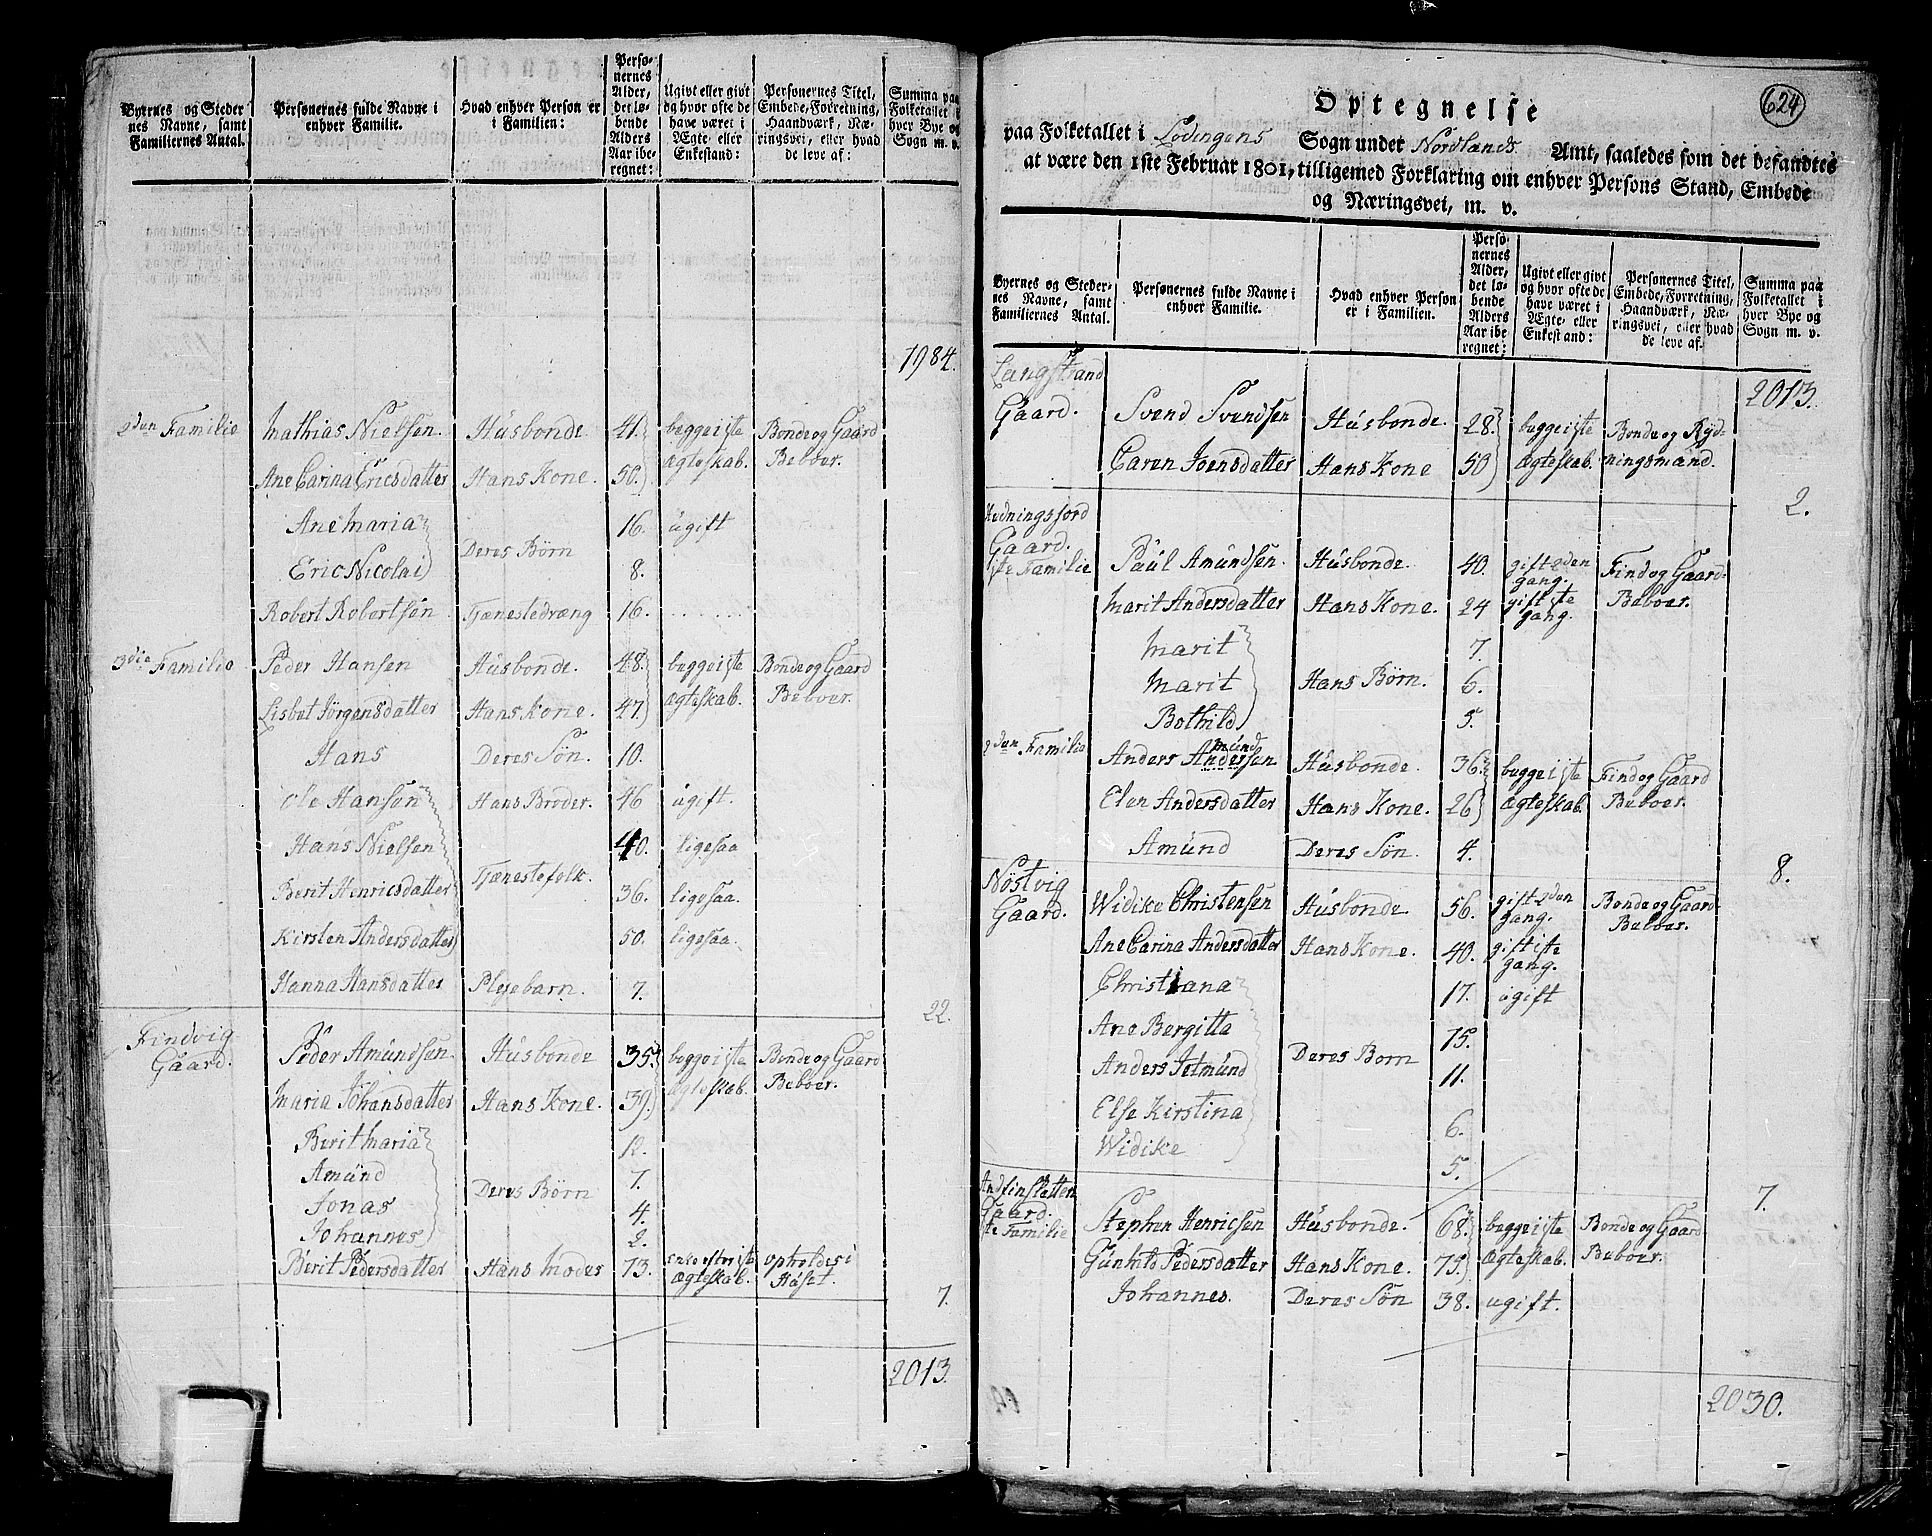 Byernes og Steder nes Navne, samt Familiernes Antal. | Personernes fulde Navne i enhver Familie. | Hvad enhver Person er i Familien: | Personernes Alder, det løbende Alders Aar iberegnet: | Ugivt eller givt og hvor ofte de have været i Ægte- eller Enkestand: | Personernes Titel, Embede, Forretning, Haandværk, Næringsvei, eller hvad de leve af: | Summa paa Folketallet i hver Bye og Sogn m. v.
1984.
2den Familie | Mathias Nielsen | Husbonde | 41. | begge 1ste | Bonde og Gaard
Ane Carina Ericsdatter | Hans Kone. | 50. | Ægteskab. | Beboer.
Ane Maria | 16. | ugift
Deres Børn
Eric Nicolai | 8.
Robert Robertsen | Tjenestedræng | 16.
3die Familie | Peder Hansen | Husbonde. | 48. | begge 1ste | Bonde og Gaard
Lisbet Jørgensdatter | Hans Kone. | 47. | Ægteskab. | Beboer.
Hans | Deres Søn | 10.
Ole Hansen | Hans Broder. | 46 | ugift.
Hans Nielsen | 40. | ligesaa
Tjenestefolk.
Berit Henricsdatter | 36. | ligesaa.
Kirsten Andersdatter | 50. | ligesaa.
Hanna Hansdatter | Plejebarn. | 7.
22.
Findvig Gaard. | Peder Amundsen | Husbonde | 35. | begge 1ste | Bonde og Gaard
Maria Johansdatter | Hans Kone. | 39. | Ægteskab. | Beboer.
Berit Maria | 12.
Amund | 7.
Deres Børn
Jonas | 4.
Johannes | 2.
Berit Pedersdatter | Hans Moder | 73. | enke efter 1ste Ægteskab. | opholdes i Huset.
7.
2013.
624
Optegnelse
paa Folketallet i Lødingens Sogn under Nordlands Amt, saaledes som det befandtes
at være den 1ste Februar 1801, tilligemed Forklaring om enhver Persons Stand, Embede
og Næringsvei, m. v.
Byernes og Stedernes Navne, samt Familiernes Antal. | Personernes fulde Navne i enhver Familie. | Hvad enhver Person er i Familien. | Personernes Alder, det løbende Alders Aar iberegnet: | Ugivt eller givt og hvor ofte de have været i Ægte- eller Enkestand: | Personernes Titel, Embede, Forretning, Haandværk, Næringsvei, eller hvad de leve af. | Summa paa Folketallet i hver Bye og Sogn m. v.
2013.
Langstrand Gaard. | Svend Svendsen | Husbonde. | 28. | begge 1ste | Bonde og Ryd-
Caren Joensdatter | Hans Kone | 50 | Ægteskab. | ningsmand.
2.
Gaard.
1ste Familie | Paul Amundsen | Husbonde. | 40. | gift 2den gang. | Find og Gaard-
Marit Andersdatter | Hans Kone. | 24 | gift 1ste gang. | Beboer.
Marit | 7.
Marit | Hans Børn. | 6.
Bothild | 5.
2den Familie | Anders Amundsen | Husbonde. | 36. | begge 1ste | Find og Gaard
Elen Andersdatter | Hans Kone. | 26 | Ægteskab. | Beboer.
Amund | Deres Søn. | 4.
8.
Nøstvig Gaard. | Widike Christensen | Husbonde | 56. | gift 2den gang. | Bonde og Gaard-
Ane Carina Andersdatter | Hans Kone. | 40. | gift 1ste gang. | Beboer.
Christiana | 17. | ugift
Ane Bergitta | 15.
Deres Børn
Anders Jetmund | 11.
Else Kirstina | 6.
Widike | 5.
7.
Gaard.
1ste Familie | Stephen Henricsen | Husbonde. | 68. | begge 1ste | Bonde og Gaard
Gunhild Pedersdatter | Hans Kone. | 75. | Ægteskab. | Beboer.
Johannes. | Deres Søn | 38. | ugift.
2030.